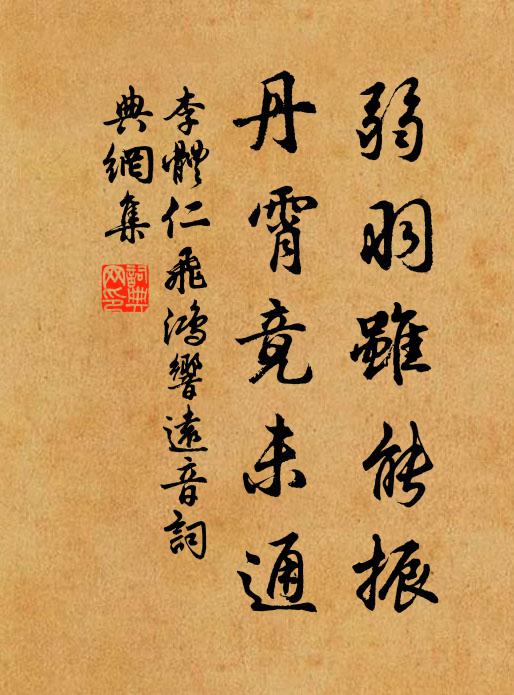 弱羽雖能振
丹霄竟未通
李體仁飛鴻響遠音詞
典網集
詞典
网印